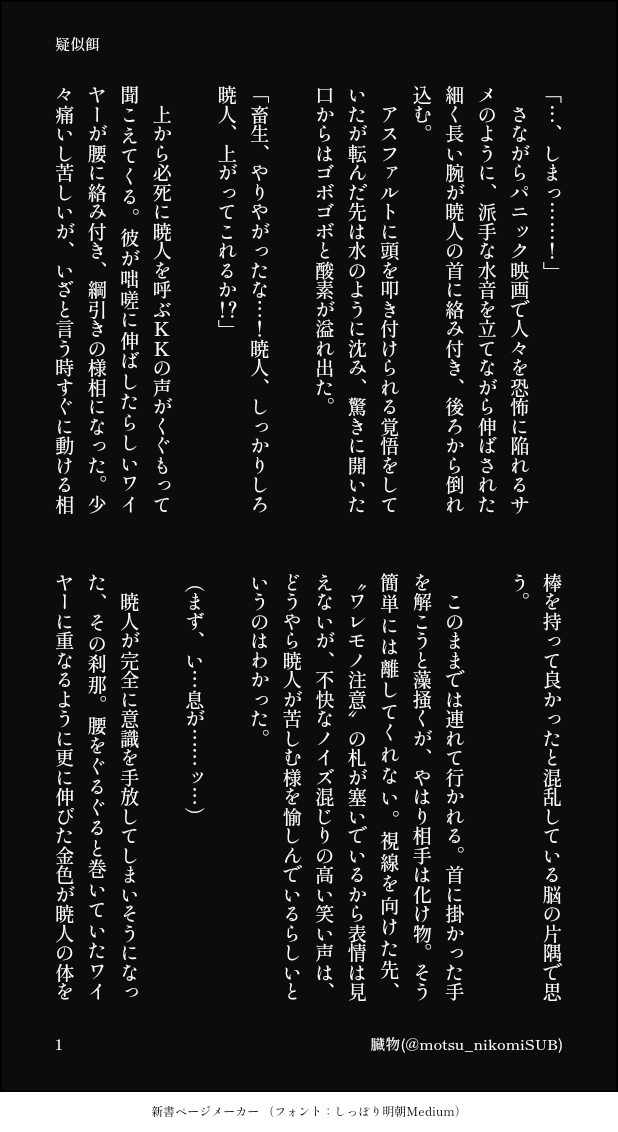 疑似餌
「…、しまっ……！」
　さながらパニック映画で人々を恐怖に陥れるサ
メのように、派手な水音を立てながら伸ばされた
細く長い腕が暁人の首に絡み付き、後ろから倒れ
込む。
　アスファルトに頭を叩き付けられる覚悟をして
いたが転んだ先は水のように沈み、驚きに開いた
口からはゴボゴボと酸素が溢れ出た。
「畜生、やりやがったな…！暁人、しっかりしろ
暁人、上がってこれるか!?」
　上から必死に暁人を呼ぶＫＫの声がくぐもって
聞こえてくる。彼が咄嗟に伸ばしたらしいワイ
ヤーが腰に絡み付き、綱引きの様相になった。少
々痛いし苦しいが、いざと言う時すぐに動ける相
棒を持って良かったと混乱している脳の片隅で思
う。
　このままでは連れて行かれる。首に掛かった手
を解こうと藻掻くが、やはり相手は化け物。そう
簡単には離してくれない。視線を向けた先、
〝ワレモノ注意〟の札が塞いでいるから表情は見
えないが、不快なノイズ混じりの高い笑い声は、
どうやら暁人が苦しむ様を愉しんでいるらしいと
いうのはわかった。
(まず、い…息が……ッ…)
　暁人が完全に意識を手放してしまいそうになっ
た、その刹那。腰をぐるぐると巻いていたワイ
ヤーに重なるように更に伸びた金色が暁人の体を
1
臓物(@motsu_nikomiSUB)
新書ページメーカー （フォント：しっぽり明朝Medium）